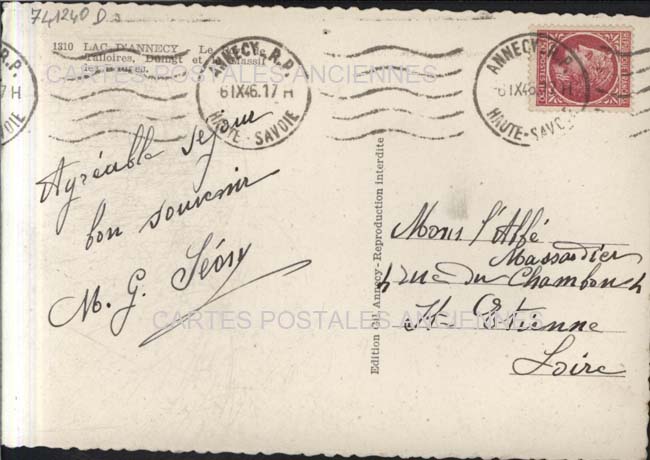 741240 D
1310 LAC D'ANNECY Le
Talloires, Duingt et Massif
des Bauges.
CARTES POSTALES ANCIENNES
R.P.
7 H
OIE
ANNECY R.P.
6 IX46.17 H
HAUTE-SAVOIE
ANNECY R.P.
-6 IX46 H
HAUTE-SAVOIE
POSTES
Agréable séjour
bon souvenir
M. G.
Edition Gil. Annecy-Reproduction interdite
Mons l'Abbé
Massardier
4 rue du Chambon 4
St. Etienne
Loire
CARTES POSTALES ANCIENNES